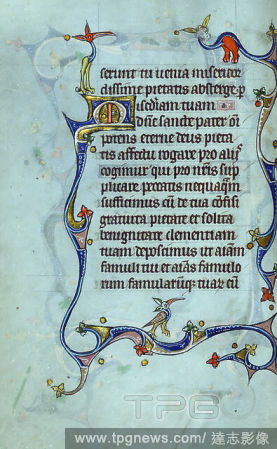 serunt tu uenia misericor
dissime pietatis absterge p
usediam tuam
Dñe sancte pater oī
potens eterne deus pieta
tis affectu rogare pro alijs
cogimur qui pro nr̄is sup
plicare peccatis nequaq̄m
sufficimus cū de tua cōfisi
gratuita pietate et solita
benignitate clementiam
tuam deposcimus ut aīam
famuli tui et aīas famulo
rum famularūq; tuar̄ cū
TPG
www.tpgnews.com/ 達志影像